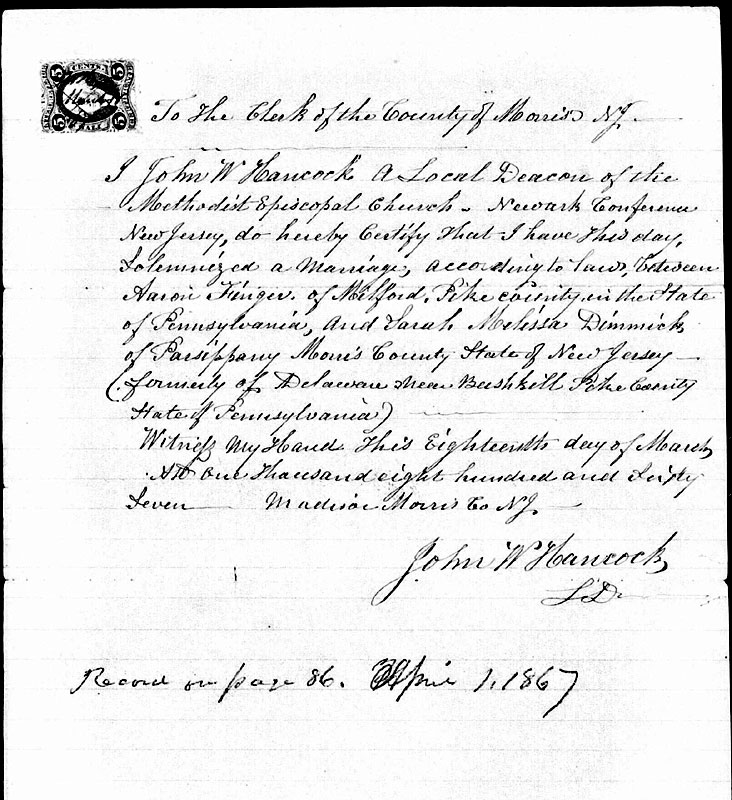 5 CENTS 5
To the Clerk of the County of Morris NJ.
I John W Hancock A Local Deacon of the
Methodist Episcopal Church - Newark Conference
New Jersey, do hereby Certify that I have this day,
Solemnized a Marriage, according to law, between
Aaron of Milford, Pike county, in the State
of Pennsylvania, And Sarah Melissa Dimmick,
of Parsippany Morris County State of New Jersey —
(formerly of Delaware near Bushkill Pike County
State of Pennsylvania)
Witness My Hand This Eighteenth day of March
AD One thousand eight hundred and Sixty
Seven — Madison Morris Co NJ —
John W Hancock
L D
Record on page 86. April 1. 1867